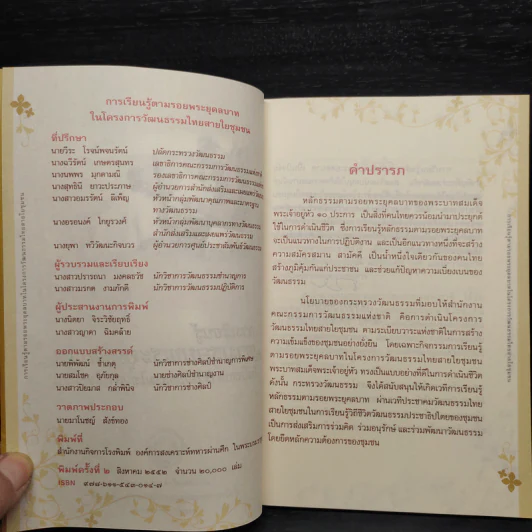 การเรียนรู้ตามรอยพระยุคลบาท
ในโครงการวัฒนธรรมไทยสายใยชุมชน
ที่ปรึกษา
นายวีระ โรจน์พจนรัตน์ ปลัดกระทรวงวัฒนธรรม
นางฉวีรัตน์ เกษตรสุนทร เลขาธิการคณะกรรมการวัฒนธรรมแห่งชาติ
นางนพพร มุกดามณี รองเลขาธิการคณะกรรมการวัฒนธรรมแห่งชาติ
นายสุทธินี ยาวะประภาษ ผู้อำนวยการสำนักส่งเสริมและเผยแพร่วัฒนธรรม
นางสาวยมรรัตน์ ลิเพ็ญ หัวหน้ากลุ่มพัฒนาคุณภาพและมาตรฐาน
ทางวัฒนธรรม
นางยรอนงค์ ไทยูรวงศ์ หัวหน้ากลุ่มพัฒนาบุคลากรทางวัฒนธรรม
สำนักส่งเสริมและเผยแพร่วัฒนธรรม
นางยุพา ทวีวัฒนะกิจบวร ผู้อำนวยการศูนย์ประชาสัมพันธ์วัฒนธรรม
ผู้รวบรวมและเรียบเรียง
นางสาวปรารถนา มงคลธวัช นักวิชาการวัฒนธรรมชำนาญการ
นางสาวมรกต งามภักดี นักวิชาการวัฒนธรรมปฏิบัติการ
ผู้ประสานงานการพิมพ์
นางนิตยา จิระวิชัยฤทธิ์
นางสาวญาดา ฉิมคล้าย
ออกแบบสร้างสรรค์
นายพิพัฒน์ ช้ำเกตุ นักวิชาการช่างศิลป์ชำนาญการพิเศษ
นายสมโชค อุภัยกุล นายช่างศิลป์ชำนาญงาน
นางสาวปิยมาส กล่ำพินิจ นักวิชาการช่างศิลป์
วาดภาพประกอบ
นายมาโนชญ์ สังข์ทอง
พิมพ์ที่
สำนักงานกิจการโรงพิมพ์ องค์การสงเคราะห์ทหารผ่านศึก
พิมพ์ครั้งที่ ๒ สิงหาคม ๒๕๕๒ จำนวน ๒๐,๐๐๐ เล่ม
ISBN ๙๗๘-๖๑๑-๕๔๓-๐๑๔-๗
คำปรารภ
หลักธรรมตามรอยพระยุคลบาทของพระบาทสมเด็จ
พระเจ้าอยู่หัว ๑๐ ประการ เป็นสิ่งที่คนไทยควรน้อมนำมาประยุกต์
ใช้ในการดำเนินชีวิต ซึ่งการเรียนรู้หลักธรรมตามรอยพระยุคลบาท
จะเป็นแนวทางในการปฏิบัติงาน และเป็นอีกแนวทางหนึ่งที่จะสร้าง
ความสมัครสมาน สามัคคี เป็นน้ำหนึ่งใจเดียวกันของคนไทย
สร้างภูมิคุ้มกันแก่ประชาชน และช่วยแก้ปัญหาความเบี่ยงเบนของ
วัฒนธรรม
นโยบายของกระทรวงวัฒนธรรมที่มอบให้สำนักงาน
คณะกรรมการวัฒนธรรมแห่งชาติ คือการดำเนินโครงการ
วัฒนธรรมไทยสายใยชุมชน ตามระเบียบวาระแห่งชาติในการสร้าง
ความเข้มแข็งของชุมชนอย่างยั่งยืน โดยเฉพาะกิจกรรมการเรียนรู้
ตามรอยพระยุคลบาทในโครงการวัฒนธรรมไทยสายใยชุมชน
พระบาทสมเด็จพระเจ้าอยู่หัว ทรงเป็นแบบอย่างที่ดีในการดำเนินชีวิต
ดังนั้น กระทรวงวัฒนธรรม จึงได้สนับสนุนให้เกิดเวทีการเรียนรู้
หลักธรรมตามรอยพระยุคลบาท ผ่านเวทีประชาคมวัฒนธรรมไทย
สายใยชุมชนในการเรียนรู้วิถีชีวิตวัฒนธรรมประชาธิปไตยของชุมชน
เป็นการส่งเสริมการร่วมคิด ร่วมอนุรักษ์ และร่วมพัฒนาวัฒนธรรม
โดยยึดหลักความต้องการของชุมชน